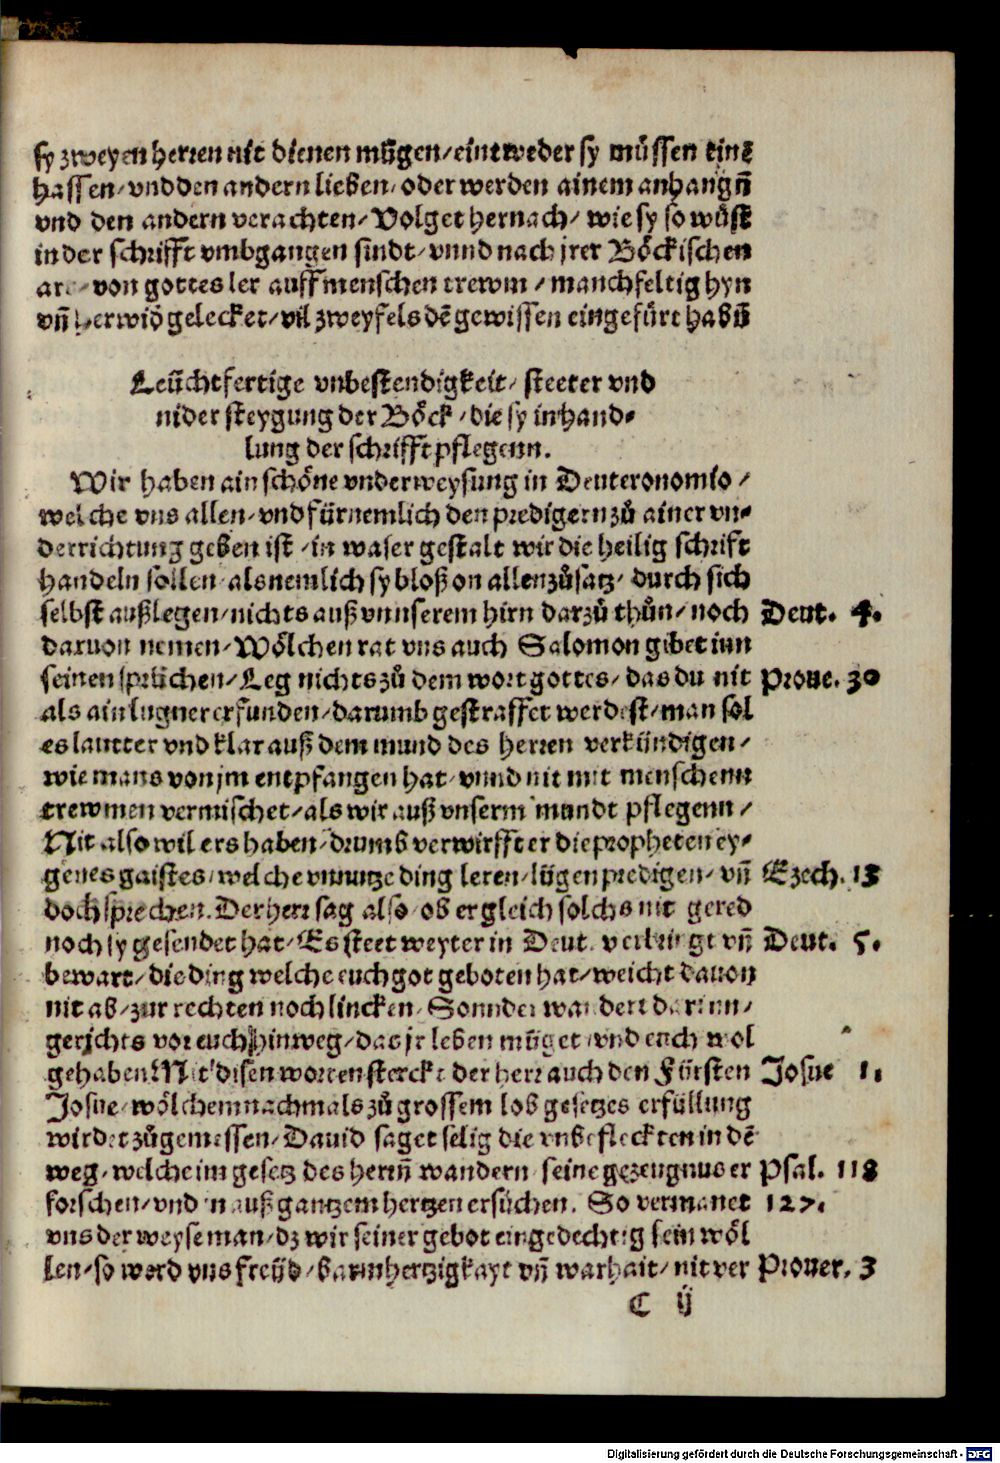 sy zweyen herren nit dienen mügen/eintweder sy müssen einē
hassen/vnd den andern lieben/oder werden ainem anhangn̄
vnd den andern verachten/Volget hernach/wie sy so wůst
in der schrifft vmbgangen sindt/vnnd nach jrer Böckischen
art/von gottes ler auff menschen trewm/manchfeltig hyn
vn̄ herwid gelecket/vil zweyfels dē gewissen eingefürt habn̄
Leüchtfertige vnbestendigkeit/steeter vnd
nider steygung der Böck/die sy in hand-
lung der schrifft pflegenn.
Wir haben ain schöne vnderweysung in Deuteronomio/
welche vns allen/vnd fürnemlich den predigern zů ainer vn-
derrichtung geben ist/in waser gestalt wir die heilig schrift
handeln sollen/als nemlich sy bloß on allen zůsatz/durch sich
selbst außlegen/nichts auß vnnserem hirn darzů thůn/noch Deut. 4.
daruon nemen/Wölchen rat vns auch Salomon gibet inn
seinen sprüchen/Leg nichts zů dem wort gottes/das du nit Proue. 30
als ain lugner erfunden/darumb gestraffet werdest/man sol
es lautter vnd klar auß dem mund des herren verkündigen/
wie mans von jm entpfangen hat/vnnd nit mit menschenn
trewmen vermischet/als wir auß vnserm mundt pflegenn/
Nit also wil ers haben/drumb verwirfft er die propheten ey-
genes gaistes/welche vnnutze ding leren/lügen predigen/vn̄ Ezech. 13
doch sprechen. Der herr sag also/ob er gleich solchs nit gered
noch sy gesendet hat/Es steet weyter in Deut. verbringt vn̄ Deut. 5.
bewart/die ding welche euch got geboten hat/weicht dauon
nit ab/zur rechten noch lincken/Sonnder wandert darinn/
gerichts vor euch hinweg/das jr leben müget vnd euch wol
gehaben Mit disen worten sterckt der herr auch den Fürsten Josue 1.
Josue/wölchem nachmals zů grossem lob gesetzes erfüllung
wirdet zůgemessen/Dauid saget selig die vnbefleckten in dē
weg/welche im gesetz des herrn̄ wandern seine gezeugnus er Psal. 118
forschen/vnd in auß gantzem hertzen ersůchen. So vermanet 127.
vns der weyse man/dz wir seiner gebot eingedechtig sein wöl
len/so werd vns freüd/barmhertzigkayt vn̄ warhait/nit ver Prouer. 3
C ij
Digitalisierung gefördert durch die Deutsche Forschungsgemeinschaft - DFG